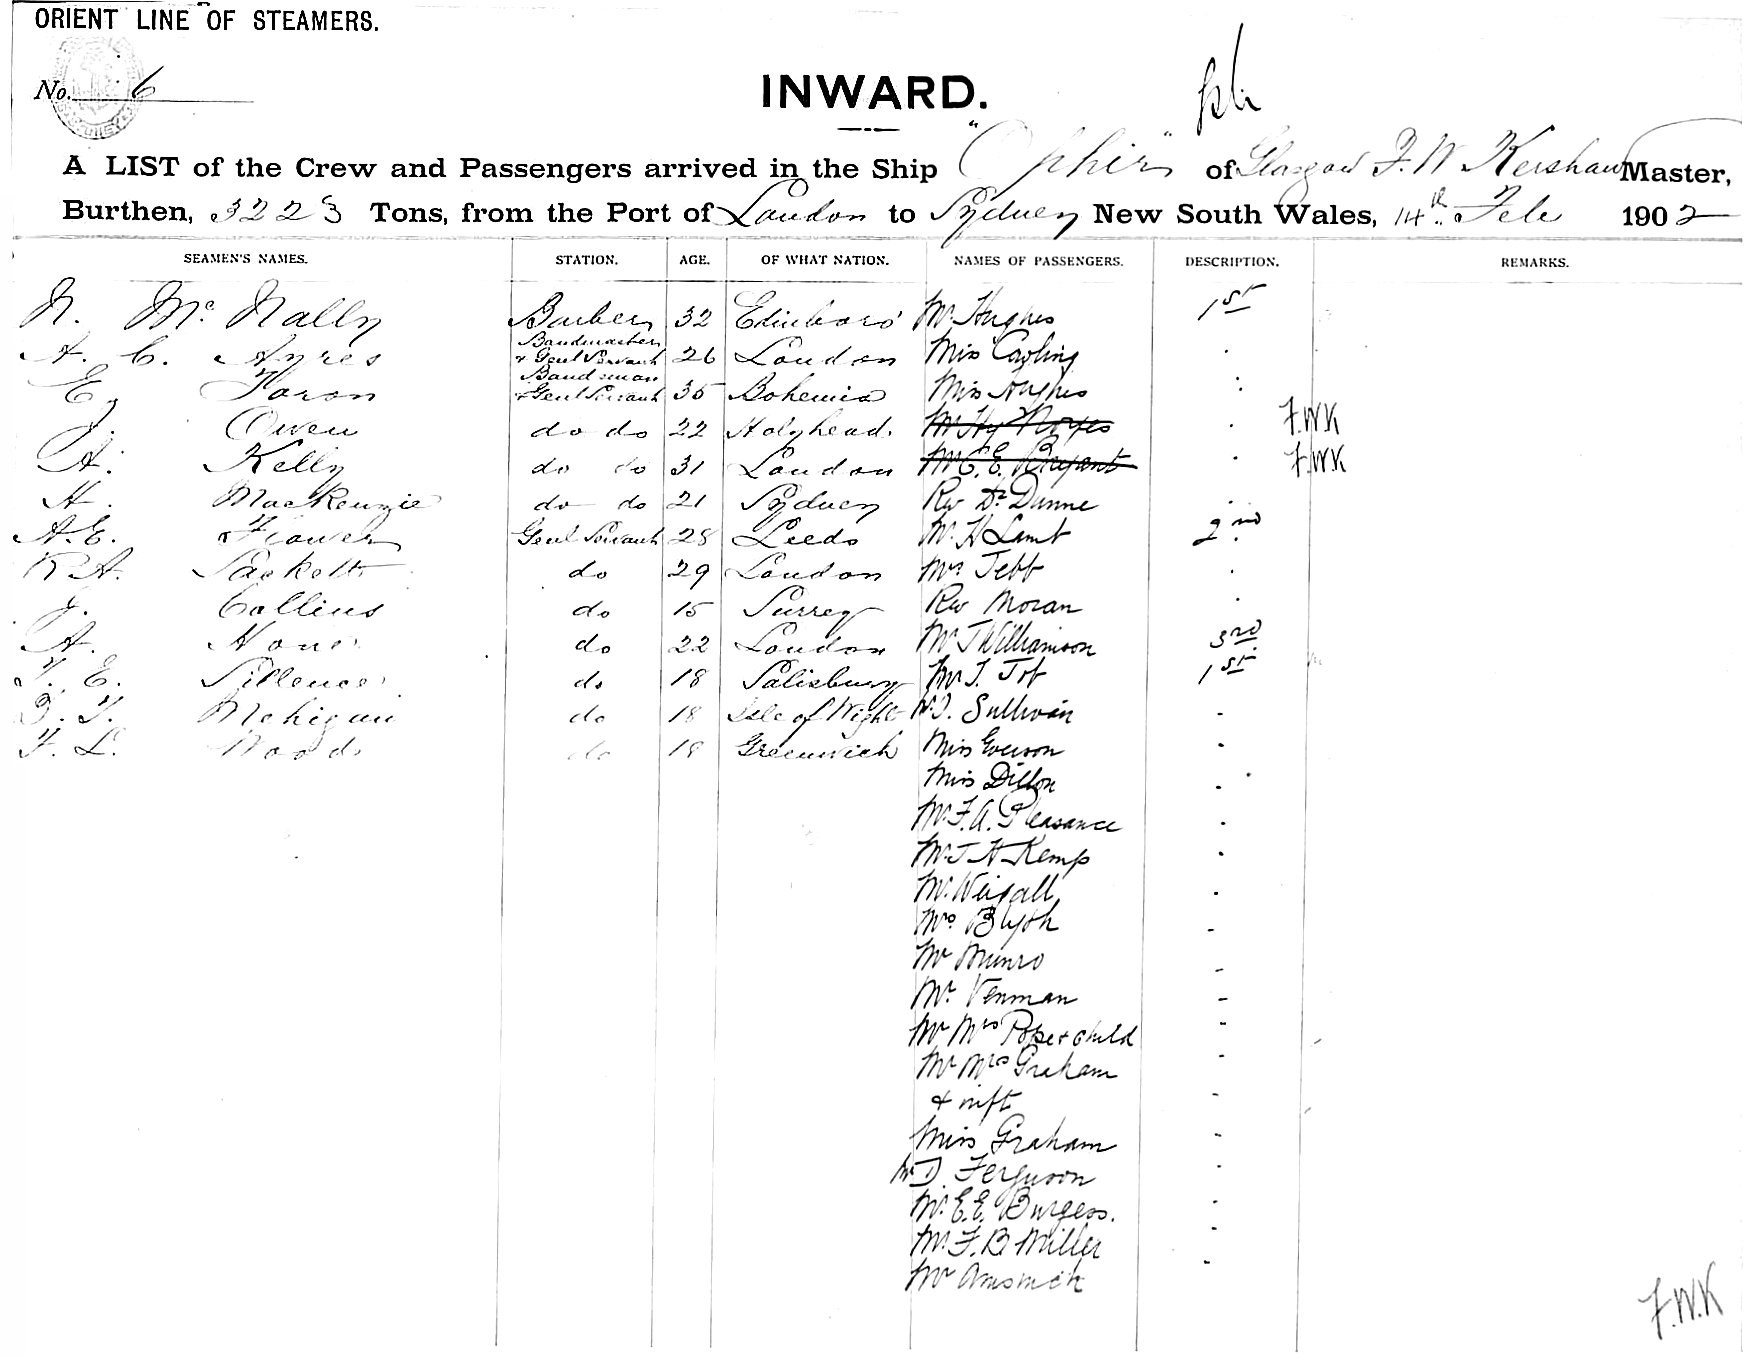 ORIENT LINE OF STEAMERS.
No. 6
INWARD.
A LIST of the Crew and Passengers arrived in the Ship "Ophir" of Glasgow F. W Kershaw Master,
Burthen, 3223 Tons, from the Port of London to Sydney New South Wales, 14th Feb 1902
SEAMEN'S NAMES. STATION. AGE. OF WHAT NATION. NAMES OF PASSENGERS. DESCRIPTION. REMARKS.
N. McNally Barber 32 Edinboro' Mr Hughes 1st
A. C. Ayres Bandmaster & Genl Servant 26 London Miss
E. Bandsman & Genl Servant 35 Bohemia Miss Hughes
J. Owen do do 22 Holyhead. Mr Hy Noyes F.W.K
A. Kelly do do 31 London Mr C. E. Bryant F.W.K
H. MacKenzie do do 21 Sydney Rev Dr Dunne
A. E. Genl Servant 28 Leeds Mr H Lamb 2nd
R A. Sackett do 29 London Mrs Jebb
J. Collins do 15 Surrey Rev Moran
A. Hone do 22 London Mr J Williamson 3rd
T. E. Sillence do 18 Salisbury Mr J. 1st
T. Mehigan do 18 Isle of Wight Mr J. Sullivan
F. L. Wood do 18 Greenwich Miss Everson
Miss Dillon
Mr F. A. Pleasance
Mr J H Kemp
Mr Weigall
Mrs Blyth
Mr Munro
Mr Venman
Mr Mrs Pope & child
Mr Mrs Graham
& inft
Miss Graham
Mr D. Ferguson
Mr. E. E. Burgess.
Mr F. B Miller
Mr
F.W.K